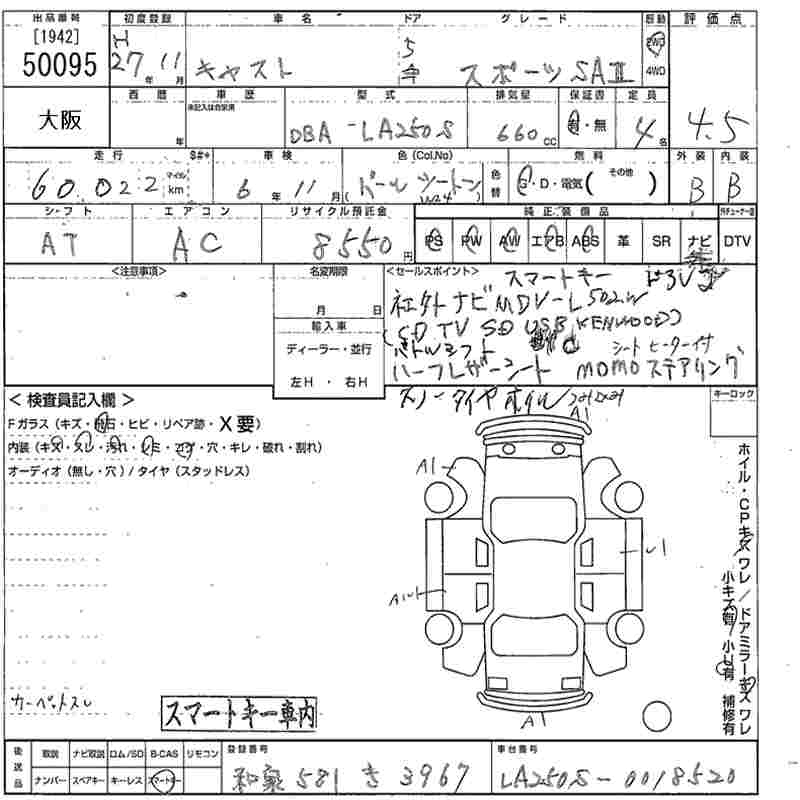 出品番号 初度登録 車名 ドア グレード 駆動 評価点
[1942]
50095
H 27年 11月 キャスト 5 スポーツ SAⅡ 2WD 4WD
西暦 車歴 型式 排気量 保証書 定員
未記入は自家用
大阪 年 DBA-LA250S 660cc 有・無 4名 4.5
走行 $#* 車検 色(Col.No) 燃料 外装 内装
60,022 マイル km 6年 11月 (パール ツートン W24 色替 G・D・電気( その他 ) B B
シフト エアコン リサイクル預託金 純正装備品
AT AC 8550円 PS PW AW エアB ABS 革 SR ナビ DTV
<注意事項> 名変期限 <セールスポイント> スマートキー
月 日 社外ナビ MDV-L502W
輸入車 (CD TV SD USB KENWOOD)
ディーラー・並行 シートヒーター付
左H ・ 右H ハーフレザーシート MOMOステアリング
スノータイヤ ホイル
キーロック
< 検査員記入欄 >
Fガラス(キズ・飛石・ヒビ・リペア跡・X要)
内装(キズ・スレ・汚れ・シミ・コゲ・穴・キレ・破れ・割れ)
オーディオ(無し・穴)/タイヤ(スタッドレス)
A1
A1
A1
ホイル・CPキズワレ/ドアミラーキズワレ
小キズ有 小U有 補修有
カーペットスレ
スマートキー車内
後送品 取説 ナビ取説 ロム/SD B-CAS リモコン 登録番号 車台番号
ナンバー スペアキー キーレス スマートキー 和泉 581 き 3967 LA250S-0018520